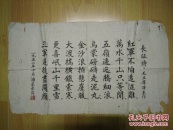 長征詩
紅軍不怕遠征難
萬水千山只等閒
五嶺逶迤騰細浪
烏蒙磅礴走泥丸
金沙浪拍懸崖暖
大渡橋橫鐵索寒
更喜岷山千里雪
三軍過後盡開顏